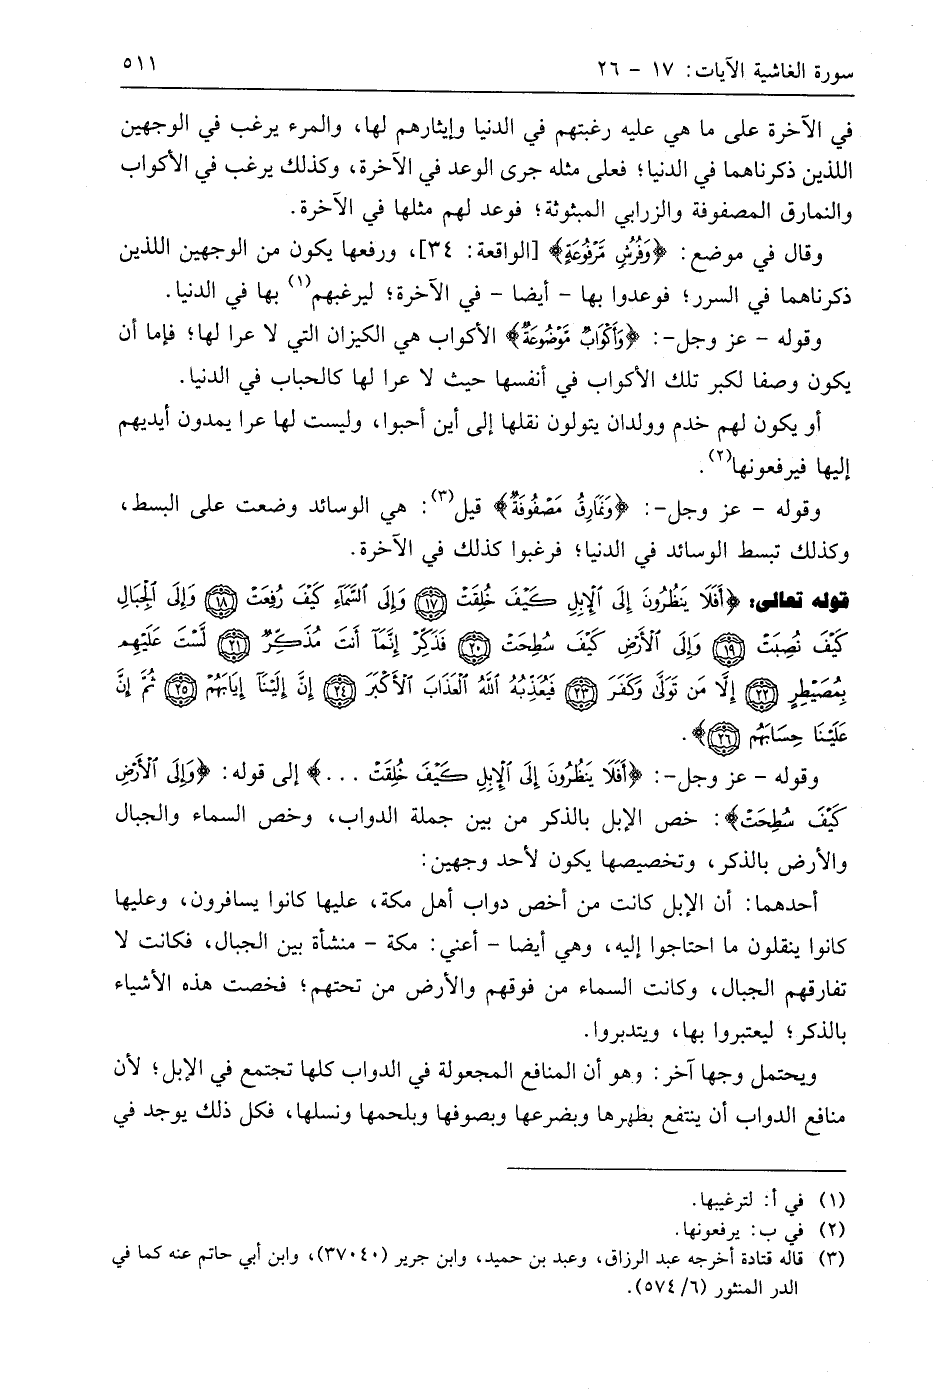 سورة الغاشية الآيات: ١٧ - ٢٦ ٥١١
في الآخرة على ما هي عليه رغبتهم في الدنيا وإيثارهم لها، والمرء يرغب في الوجهين
اللذين ذكرناهما في الدنيا؛ فعلى مثله جرى الوعد في الآخرة، وكذلك يرغب في الأكواب
والنمارق المصفوفة والزرابي المبثوثة؛ فوعد لهم مثلها في الآخرة.
وقال في موضع: ﴿وَفُرُشٍ مَّرْفُوعَةٍ﴾ [الواقعة: ٣٤]، ورفعها يكون من الوجهين اللذين
ذكرناهما في السرر؛ فوعدوا بها - أيضا - في الآخرة؛ ليرغبهم(١) بها في الدنيا.
وقوله - عز وجل-: ﴿وَأَكْوَابٌ مَّوْضُوعَةٌ﴾ الأكواب هي الكيزان التي لا عرا لها؛ فإما أن
يكون وصفا لكبر تلك الأكواب في أنفسها حيث لا عرا لها كالحباب في الدنيا.
أو يكون لهم خدم وولدان يتولون نقلها إلى أين أحبوا، وليست لها عرا يمدون أيديهم
إليها فيرفعونها(٢).
وقوله - عز وجل-: ﴿وَنَمَارِقُ مَصْفُوفَةٌ﴾ قيل(٣): هي الوسائد وضعت على البسط،
وكذلك تبسط الوسائد في الدنيا؛ فرغبوا كذلك في الآخرة.
قوله تعالى: ﴿أَفَلَا يَنظُرُونَ إِلَى ٱلْإِبِلِ كَيْفَ خُلِقَتْ ١٧ وَإِلَى ٱلسَّمَآءِ كَيْفَ رُفِعَتْ ١٨ وَإِلَى ٱلْجِبَالِ
كَيْفَ نُصِبَتْ ١٩ وَإِلَى ٱلْأَرْضِ كَيْفَ سُطِحَتْ ٢٠ فَذَكِّرْ إِنَّمَآ أَنتَ مُذَكِّرٌ ٢١ لَّسْتَ عَلَيْهِم
بِمُصَيْطِرٍ ٢٢ إِلَّا مَن تَوَلَّىٰ وَكَفَرَ ٢٣ فَيُعَذِّبُهُ ٱللَّهُ ٱلْعَذَابَ ٱلْأَكْبَرَ ٢٤ إِنَّ إِلَيْنَآ إِيَابَهُمْ ٢٥ ثُمَّ إِنَّ
عَلَيْنَا حِسَابَهُم ٢٦﴾.
وقوله - عز وجل-: ﴿أَفَلَا يَنظُرُونَ إِلَى ٱلْإِبِلِ كَيْفَ خُلِقَتْ ...﴾ إلى قوله: ﴿وَإِلَى ٱلْأَرْضِ
كَيْفَ سُطِحَتْ﴾: خص الإبل بالذكر من بين جملة الدواب، وخص السماء والجبال
والأرض بالذكر، وتخصيصها يكون لأحد وجهين:
أحدهما: أن الإبل كانت من أخص دواب أهل مكة، عليها كانوا يسافرون، وعليها
كانوا ينقلون ما احتاجوا إليه، وهي أيضا - أعني: مكة - منشأة بين الجبال، فكانت لا
تفارقهم الجبال، وكانت السماء من فوقهم والأرض من تحتهم؛ فخصت هذه الأشياء
بالذكر؛ ليعتبروا بها، ويتدبروا.
ويحتمل وجها آخر: وهو أن المنافع المجعولة في الدواب كلها تجتمع في الإبل؛ لأن
منافع الدواب أن ينتفع بظهرها وبضرعها وبصوفها وبلحمها ونسلها، فكل ذلك يوجد في
(١) في أ: لترغيبها.
(٢) في ب: يرفعونها.
(٣) قاله قتادة أخرجه عبد الرزاق، وعبد بن حميد، وابن جرير (٣٧٠٤٠)، وابن أبي حاتم عنه كما في
الدر المنثور (٦/ ٥٧٤).